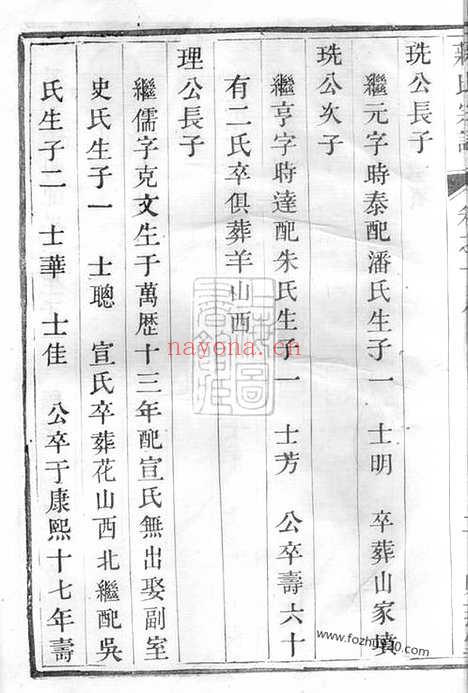 珗公長子
繼元字時泰配潘氏生子一　士明　卒葬山家墳
珗公次子
繼亨字時達配朱氏生子一　士芳　公卒壽六十
有二氏卒俱葬羊山西
理公長子
繼儒字克文生于萬歷十三年配宣氏無出娶副室
史氏生子一　士聰　宣氏卒葬花山西北繼配吳
氏生子二　士華　士佳　公卒于康熙十七年壽
nayona.cn